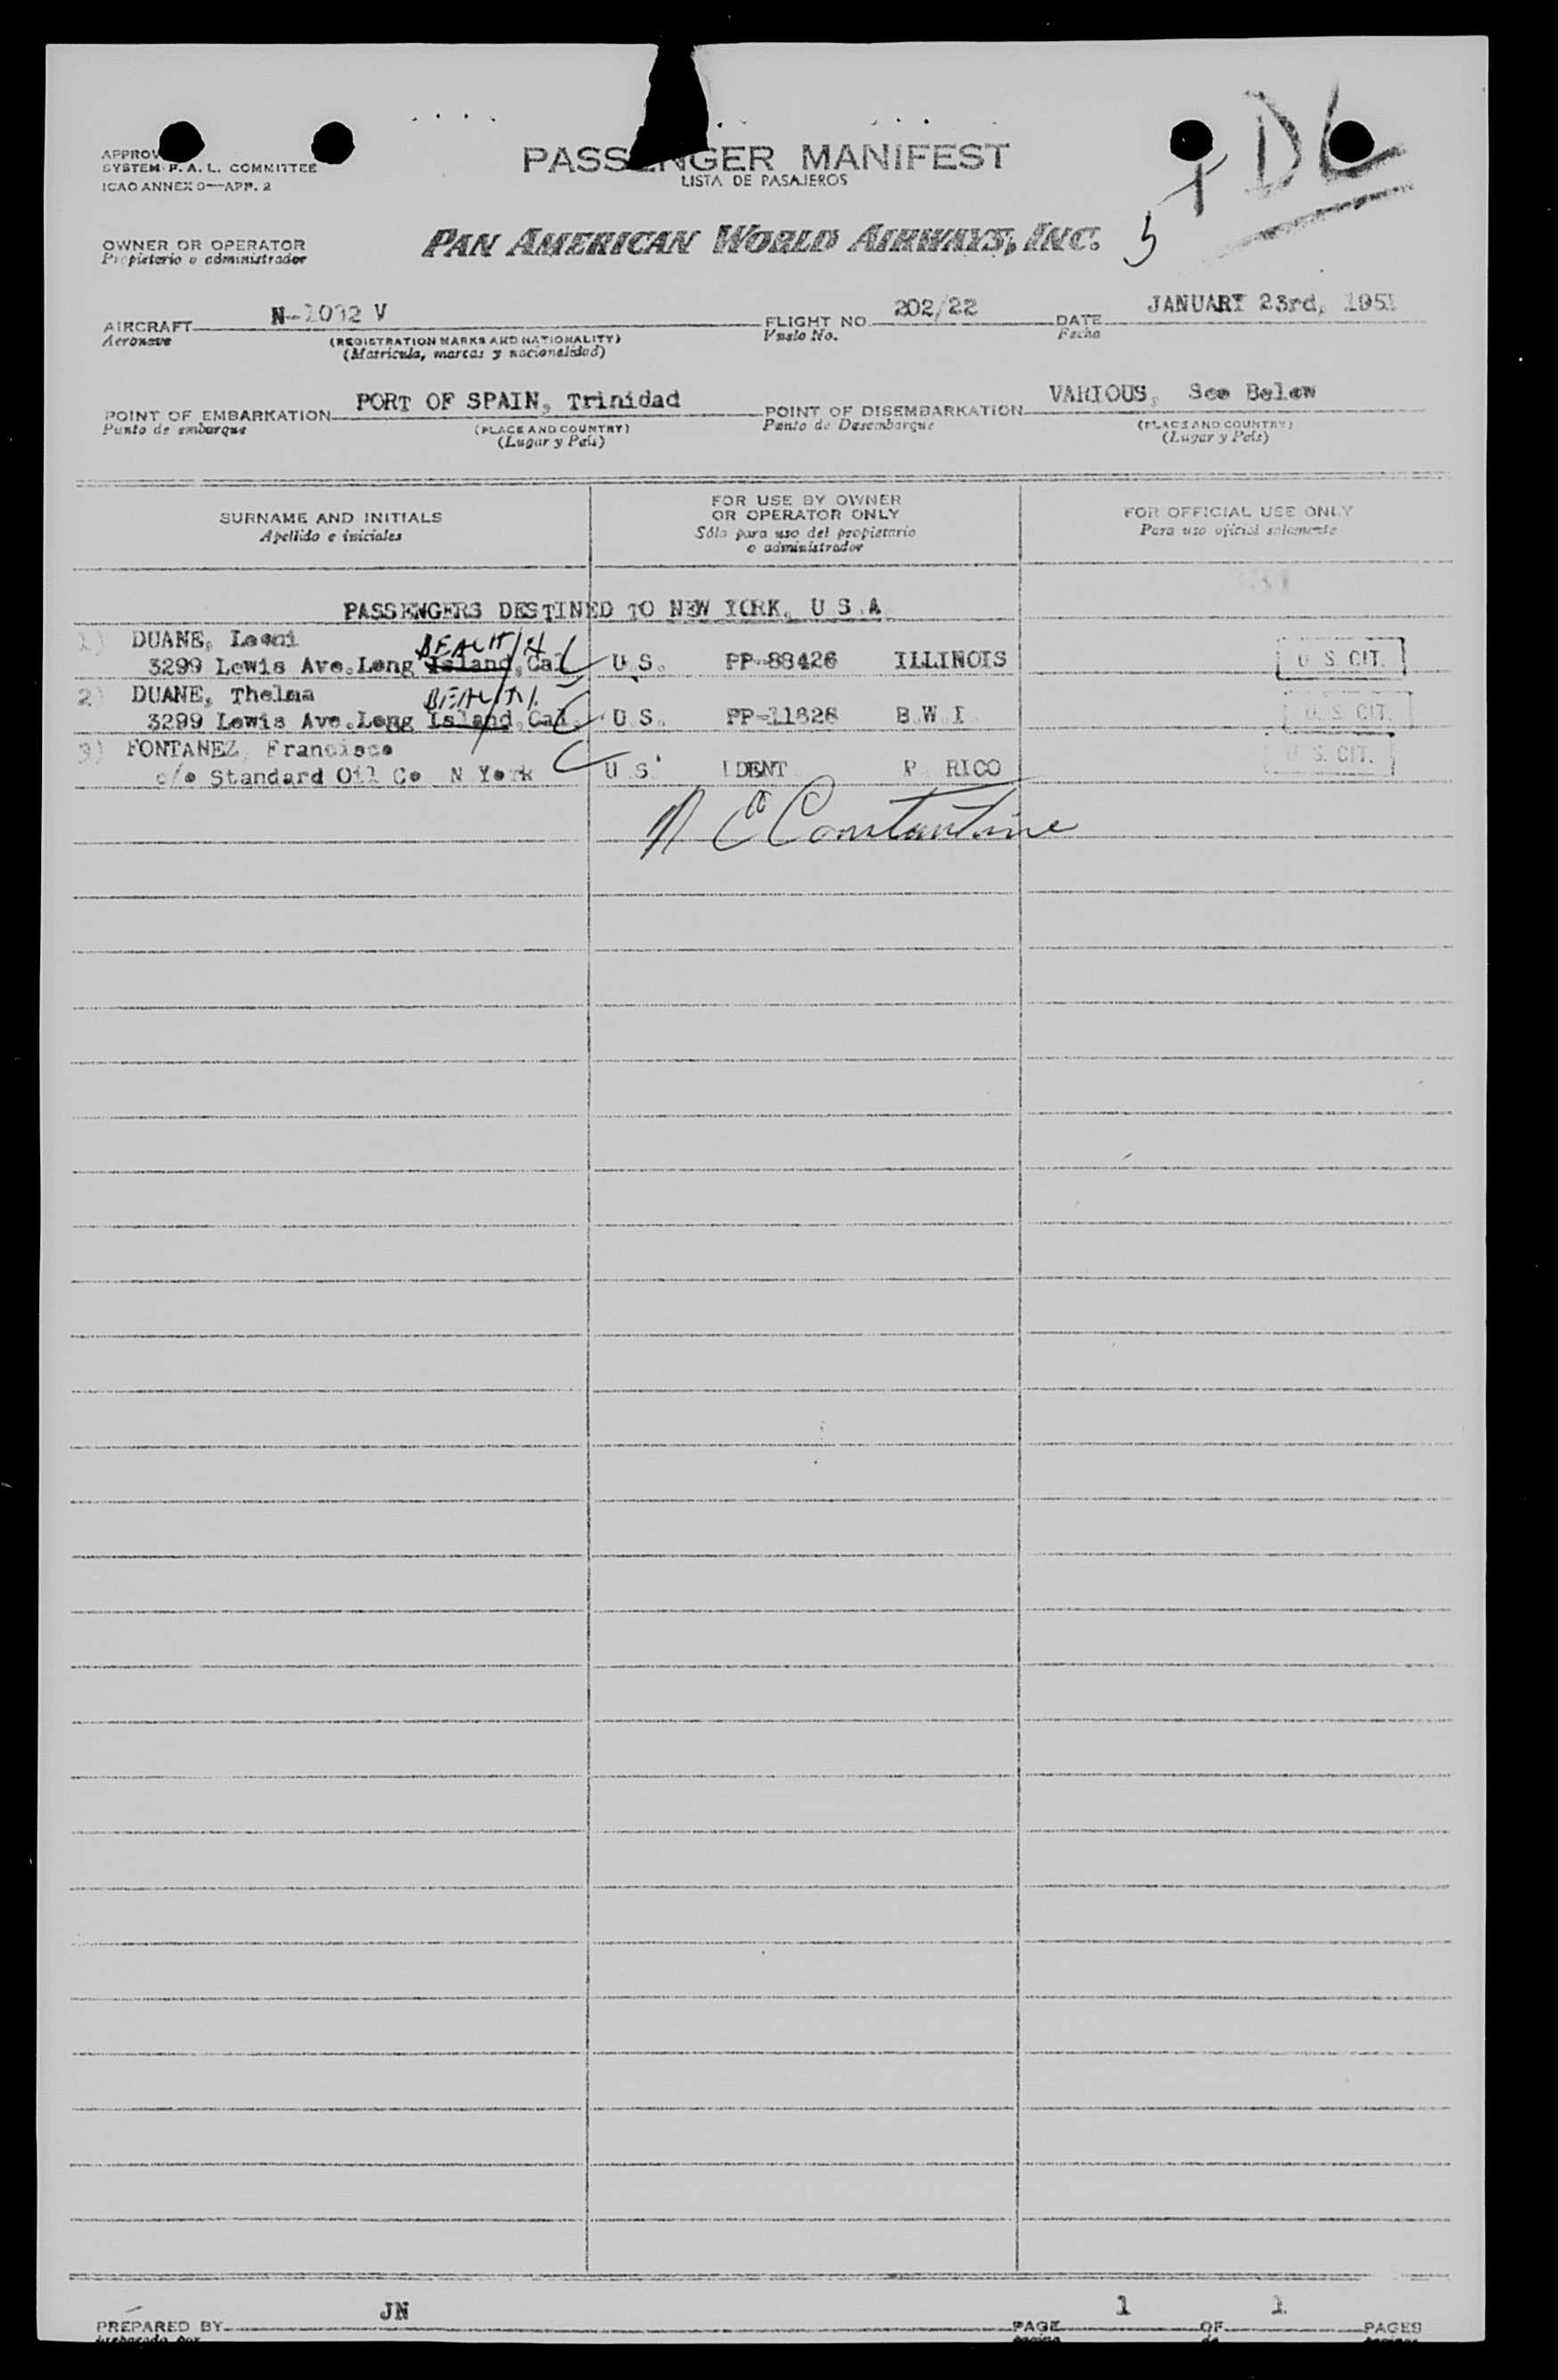 PASSENGER MANIFEST
LISTA DE PASAJEROS
SYSTEM F. A. L. COMMITTEE
ICAO ANNEX 9—APP. 2
OWNER OR OPERATOR
Propietario o administrador
PAN AMERICAN WORLD AIRWAYS, INC.
5 + DL
AIRCRAFT N-1032 V FLIGHT NO. 202/22 DATE JANUARY 23rd, 1951
Aeronave (REGISTRATION MARKS AND NATIONALITY) Vuelo No. Fecha
(Matrícula, marcas y nacionalidad)
POINT OF EMBARKATION PORT OF SPAIN, Trinidad POINT OF DISEMBARKATION VARIOUS, See Below
Punto de embarque (PLACE AND COUNTRY) Punto de Desembarque (PLACE AND COUNTRY)
(Lugar y País) (Lugar y País)
SURNAME AND INITIALS
Apellido e iniciales
FOR USE BY OWNER
OR OPERATOR ONLY
Sólo para uso del propietario
o administrador
FOR OFFICIAL USE ONLY
Para uso oficial solamente
PASSENGERS DESTINED TO NEW YORK, U.S.A.
1) DUANE,
BEACH
3299 Lewis Ave. Long Island, Cal U.S. PP-88426 ILLINOIS U. S. CIT.
2) DUANE, Thelma
BEACH
3299 Lewis Ave. Long Island, Cal. U.S. PP-11828 B.W.I. U. S. CIT.
3) FONTANEZ, Francisco
c/o Standard Oil Co N York U.S. IDENT P. RICO U. S. CIT.
Constantine
PREPARED BY JN PAGE 1 OF 1 PAGES